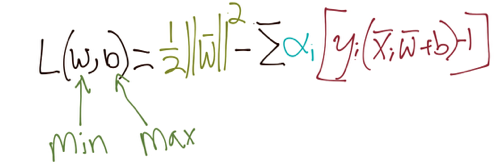 L(w,b) = 1/2 ||w̄||² - Σ αᵢ [yᵢ(x̄ᵢ w̄+b)-1]
min max